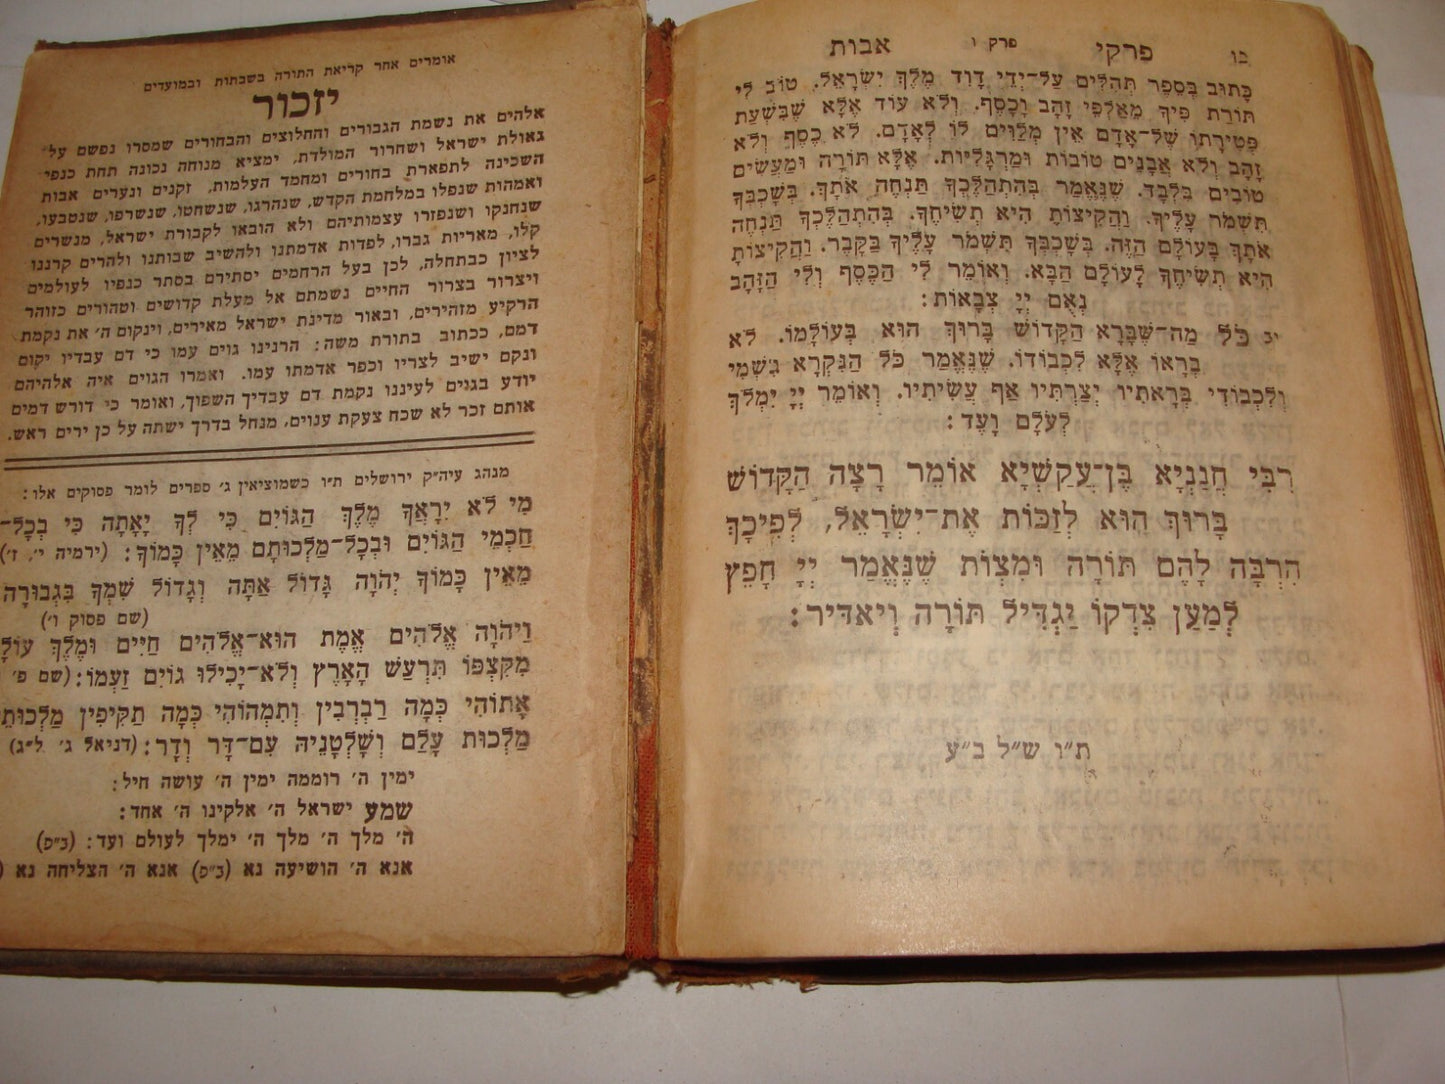 כו פרקי פרק ו אבות
כָּתוּב בְּסֵפֶר תְּהִלִּים עַל־יְדֵי דָוִד מֶלֶךְ יִשְׂרָאֵל. טוֹב לִי
תוֹרַת פִּיךָ מֵאַלְפֵי זָהָב וָכָסֶף. וְלֹא עוֹד אֶלָּא שֶׁבִּשְׁעַת
פְּטִירָתוֹ שֶׁל־אָדָם אֵין מְלַוִּים לוֹ לְאָדָם. לֹא כֶסֶף וְלֹא
זָהָב וְלֹא אֲבָנִים טוֹבוֹת וּמַרְגָּלִיּוֹת. אֶלָּא תּוֹרָה וּמַעֲשִׂים
טוֹבִים בִּלְבָד. שֶׁנֶּאֱמַר בְּהִתְהַלֶּכְךָ תַּנְחֶה אֹתָךְ. בְּשָׁכְבְּךָ
תִּשְׁמֹר עָלֶיךָ. וַהֲקִיצוֹתָ הִיא תְשִׂיחֶךָ. בְּהִתְהַלֶּכְךָ תַּנְחֶה
אֹתָךְ בָּעוֹלָם הַזֶּה. בְּשָׁכְבְּךָ תִּשְׁמֹר עָלֶיךָ בַּקָּבֶר. וַהֲקִיצוֹתָ
הִיא תְשִׂיחֶךָ לָעוֹלָם הַבָּא. וְאוֹמֵר לִי הַכֶּסֶף וְלִי הַזָּהָב
נְאֻם יְיָ צְבָאוֹת:
יג כֹּל מַה־שֶּׁבָּרָא הַקָּדוֹשׁ בָּרוּךְ הוּא בְּעוֹלָמוֹ. לֹא
בְרָאוֹ אֶלָּא לִכְבוֹדוֹ. שֶׁנֶּאֱמַר כֹּל הַנִּקְרָא בִשְׁמִי
וְלִכְבוֹדִי בְּרָאתִיו יְצַרְתִּיו אַף עֲשִׂיתִיו. וְאוֹמֵר יְיָ יִמְלֹךְ
לְעֹלָם וָעֶד:
רִבִּי חֲנַנְיָא בֶּן־עֲקַשְׁיָא אוֹמֵר רָצָה הַקָּדוֹשׁ
בָּרוּךְ הוּא לְזַכּוֹת אֶת־יִשְׂרָאֵל, לְפִיכָךְ
הִרְבָּה לָהֶם תּוֹרָה וּמִצְוֹת שֶׁנֶּאֱמַר יְיָ חָפֵץ
לְמַעַן צִדְקוֹ יַגְדִּיל תּוֹרָה וְיַאְדִּיר:
ת״ו ש״ל ב״ע
אומרים אחר קריאת התורה בשבתות ובמועדים
יזכור
אלהים את נשמת הגבורים והחלוצים והבחורים שמסרו נפשם על־
גאולת ישראל ושחרור המולדת, ימציא מנוחה נכונה תחת כנפי
השכינה לתפארת בחורים ומחמד העלמות, זקנים ונערים אבות
ואמהות שנפלו במלחמת הקדש, שנהרגו, שנשחטו, שנשרפו, שנטבעו,
שנחנקו ושנפזרו עצמותיהם ולא הובאו לקבורת ישראל, מנשרים
קלו, מאריות גברו, לפדות אדמתנו ולהשיב שבותנו ולהרים קרננו
לציון כבתחלה, לכן בעל הרחמים יסתירם בסתר כנפיו לעולמים
ויצרור בצרור החיים נשמתם אל מעלת קדושים וטהורים כזוהר
הרקיע מזהירים, ובאור מדינת ישראל מאירים, וינקום ה׳ את נקמת
דמם, ככתוב בתורת משה: הרנינו גוים עמו כי דם עבדיו יקום
ונקם ישיב לצריו וכפר אדמתו עמו. ואמרו הגוים איה אלהיהם
יודע בגוים לעיננו נקמת דם עבדיך השפוך, ואומר כי דורש דמים
אותם זכר לא שכח צעקת ענוים, מנחל בדרך ישתה על כן ירים ראש.
מנהג עיה״ק ירושלים ת״ו כשמוציאין ג׳ ספרים לומר פסוקים אלו:
מִי לֹא יִרָאֲךָ מֶלֶךְ הַגּוֹיִם כִּי לְךָ יָאָתָה כִּי בְכָל־
חַכְמֵי הַגּוֹיִם וּבְכָל־מַלְכוּתָם מֵאֵין כָּמוֹךָ: (ירמיה י׳, ז׳)
מֵאֵין כָּמוֹךָ יְהֹוָה גָּדוֹל אַתָּה וְגָדוֹל שִׁמְךָ בִּגְבוּרָה
(שם פסוק ו׳)
וַיהֹוָה אֱלֹהִים אֱמֶת הוּא־אֱלֹהִים חַיִּים וּמֶלֶךְ עוֹלָ
מִקִּצְפּוֹ תִּרְעַשׁ הָאָרֶץ וְלֹא־יָכִילוּ גוֹיִם זַעְמוֹ: (שם פ׳
אָתוֹהִי כְּמָה רַבְרְבִין וְתִמְהוֹהִי כְּמָה תַקִּיפִין מַלְכוּתֵ
מַלְכוּת עָלַם וְשָׁלְטָנֵיהּ עִם־דָּר וְדָר: (דניאל ג׳ ל״ג)
ימין ה׳ רוממה ימין ה׳ עושה חיל:
שמע ישראל ה׳ אלקינו ה׳ אחד:
ה׳ מלך ה׳ מלך ה׳ ימלך לעולם ועד: (כ״פ)
אנא ה׳ הושיעה נא (כ״פ) אנא ה׳ הצליחה נא (